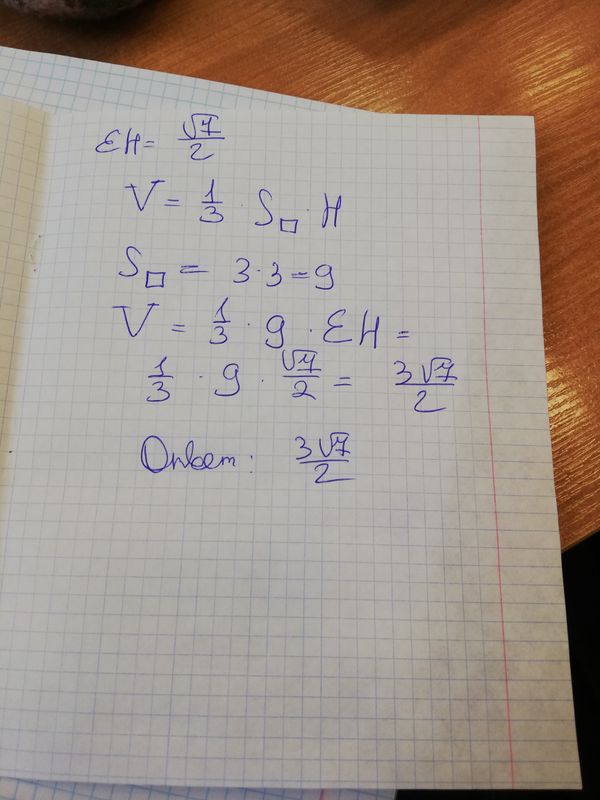 EH = √7/2
V = 1/3 · S□ · H
S□ = 3·3=9
V = 1/3 · 9 · EH =
1/3 · 9 · √7/2 = 3√7/2
Ответ: 3√7/2